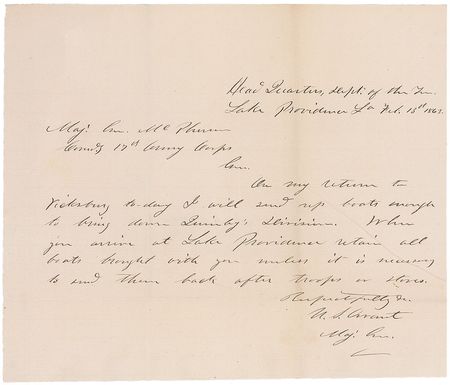 Head Quarters, Dept. of the Ten.
Lake Providence La Feb. 15th 1863.
Maj. Gen. McPherson
Comd'g 17th Army Corps
Gen.
On my return to
Vicksburg to-day I will send up boats enough
to bring down Quinby's Division. When
you arrive at Lake Providence retain all
boats brought with you unless it is necessary
to send them back after troops or stores.
Respectfully &c.
U. S. Grant
Maj. Gen.